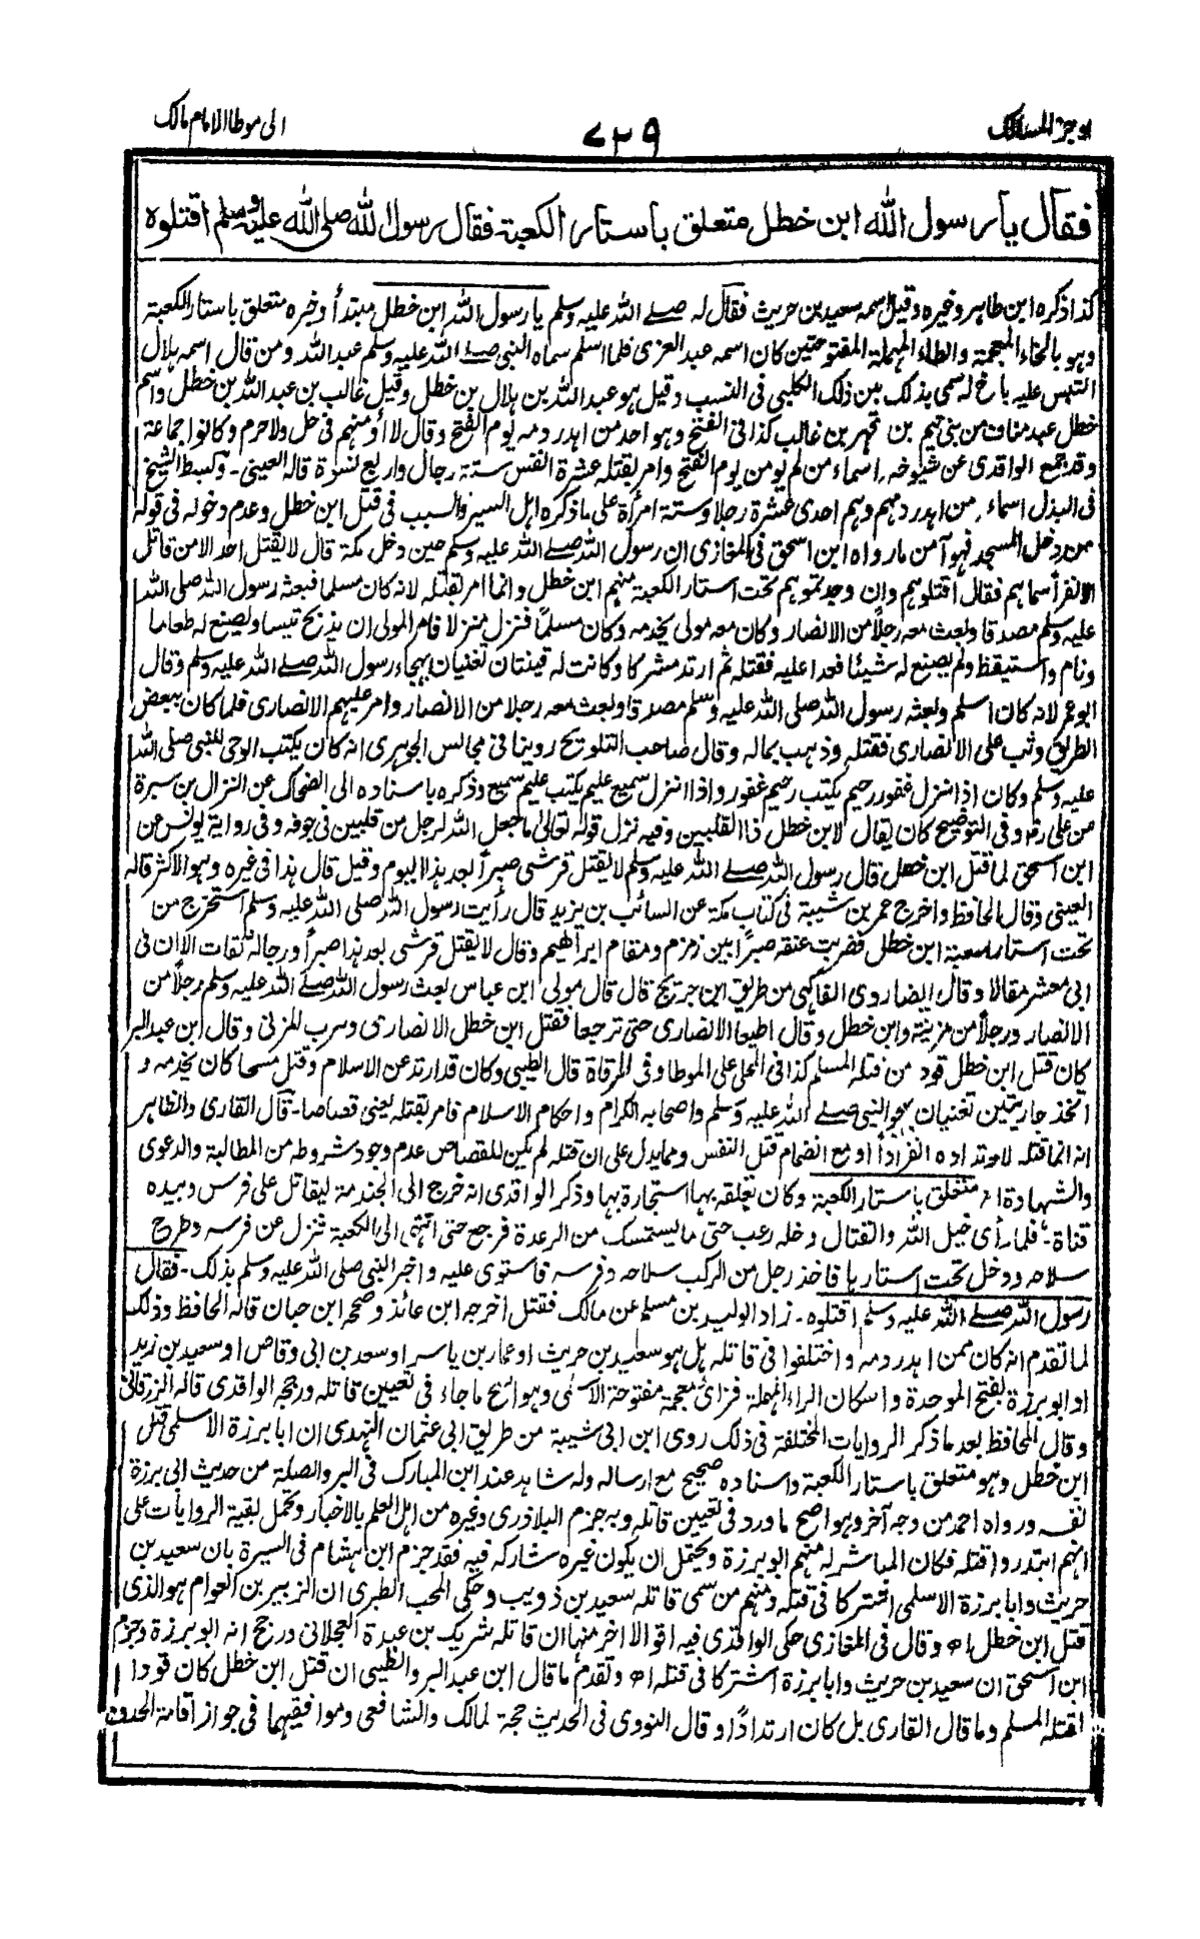 اوجز المسالک
٧٢٩
الى موطا الامام مالک
فقال يا رسول الله ابن خطل متعلق باستار الكعبة فقال رسول الله صلى الله عليه وسلم اقتلوه
كذا ذكره ابن طاهر وغيره وقيل اسمه سعيد بن حريث فقال له صلى الله عليه وسلم يا رسول الله ابن خطل مبتدأ وخبره متعلق باستار الكعبة
وهو بالخاء المعجمة والطاء المهملة المفتوحتين كان اسمه عبد العزى فلما اسلم سماه النبى صلى الله عليه وسلم عبد الله ومن قال اسمه هلال
التبس عليه باخ له سمى بذلك بين ذلك الكلبى فى النسب وقيل هو عبد الله بن هلال بن خطل وقيل غالب بن عبد الله بن خطل واسم
خطل عبد مناف من بنى تيم بن فهر بن غالب كذا فى الفتح وهو احد من اهدر دمه يوم الفتح وقال لا اؤمنهم فى حل ولا حرم وكانوا جماعة
وقد جمع الواقدى عن شيوخه اسماء من لم يومن يوم الفتح وامر بقتله عشرة انفس ستة رجال واربع نسوة قاله العينى - وبسط الشيخ
فى البذل اسماء من اهدر دمهم وهم احدى عشرة رجلا وستة امرأة على ما ذكره اهل السير والسبب فى قتل ابن خطل وعدم دخوله فى قوله
من دخل المسجد فهو آمن ما رواه ابن اسحق فى المغازى ان رسول الله صلى الله عليه وسلم حين دخل مكة قال لا يقتل احد الا من قاتل
الا نفرا سماهم فقال اقتلوهم وان وجدتموهم تحت استار الكعبة منهم ابن خطل وانما امر بقتله لانه كان مسلما فبعثه رسول الله صلى الله
عليه وسلم مصدقا وبعث معه رجلاً من الانصار وكان معه مولى يخدمه وكان مسلماً فنزل منزلا فامر المولى ان يذبح تيسا ويصنع له طعاما
ونام واستيقظ ولم يصنع له شيئا فعدا عليه فقتله ثم ارتد مشركا وكانت له قينتان تغنيان بهجاء رسول الله صلى الله عليه وسلم وقال
ابو عمر لانه كان اسلم وبعثه رسول الله صلى الله عليه وسلم مصدقا وبعث معه رجلا من الانصار وامر عليهم الانصارى فلما كان ببعض
الطريق وثب على الانصارى فقتله وذهب بماله وقال صاحب التلويح روينا فى مجالس الجوهرى انه كان يكتب الوحى للنبى صلى الله
عليه وسلم وكان اذا نزل غفور رحيم يكتب رحيم غفور واذا انزل سميع عليم يكتب عليم سميع وذكره باسناده الى الضحاك عن النزال بن سبرة
عن على رض وفى التوضيح كان يقال لابن خطل ذا القلبين وفيه نزل قوله تعالى ما جعل الله لرجل من قلبين فى جوفه وفى رواية يونس عن
ابن اسحق لما قتل ابن خطل قال رسول الله صلى الله عليه وسلم لا يقتل قرشى صبراً بعد هذا اليوم وقيل قال هذا فى غيره وهو الاكثر قاله
العينى وقال الحافظ واخرج عمر بن شيبة فى كتاب مكة عن السائب بن يزيد قال رأيت رسول الله صلى الله عليه وسلم استخرج من
تحت استار الكعبة ابن خطل فضربت عنقه صبراً بين زمزم ومقام ابراهيم وقال لا يقتل قرشى بعد هذا صبراً ورجاله ثقات الا ان فى
ابى معشر مقالا وقال ايضا روى الفاكهى من طريق ابن جريج قال قال مولى ابن عباس بعث رسول الله صلى الله عليه وسلم رجلاً من
الانصار ورجلاً من مزينة وابن خطل وقال اطيعا الانصارى حتى ترجعا فقتل ابن خطل الانصارى وهرب المزنى وقال ابن عبد البر
كان قتل ابن خطل قود من قتله المسلم كذا فى المحلى على الموطا وفى المرقاة قال الطيبى وكان قد ارتد عن الاسلام وقتل مسلما كان يخدمه و
اتخذ جاريتين تغنيان بهجو النبى صلى الله عليه وسلم واصحابه الكرام واحكام الاسلام فامر بقتله يعنى قصاصا - قال القارى والظاهر
انه انما قتله لارتداده انفراداً او مع انضمام قتل النفس ومما يدل على ان قتله لم يكن للقصاص عدم وجود شروطه من المطالبة والدعوى
والشهادة اھ متعلق باستار الكعبة وكان تعلقه بها استجارة بها وذكر الواقدى انه خرج الى الخندمة ليقاتل على فرس وبيده
قناة - فلما رأى خيل الله والقتال دخله رعب حتى ما يستمسك من الرعدة فرجع حتى انتهى الى الكعبة فنزل عن فرسه وطرح
سلاحه ودخل تحت استارها فاخذ رجل من الركب سلاحه وفرسه فاستوى عليه واخبر النبى صلى الله عليه وسلم بذلك - فقال
رسول الله صلى الله عليه وسلم اقتلوه - زاد الوليد بن مسلم عن مالك فقتل اخرجه ابن عائذ وصححه ابن حبان قاله الحافظ وذلك
لما تقدم انه كان ممن اهدر دمه واختلفوا فى قاتله هل هو سعيد بن حريث او عمار بن ياسر او سعد بن ابى وقاص او سعيد بن زيد
او ابو برزة بفتح الموحدة واسكان الراء المهملة فزاى معجمة مفتوحة الاسلمى وهو اصح ما جاء فى تعيين قاتله ورجحه الواقدى قاله الزرقانى
وقال الحافظ بعد ما ذكر الروايات المختلفة فى ذلك روى ابن ابى شيبة من طريق ابى عثمان النهدى ان ابا برزة الاسلمى قتل
ابن خطل وهو متعلق باستار الكعبة واسناده صحيح مع ارساله وله شاهد عند ابن المبارك فى البر والصلة من حديث ابى برزة
نفسه ورواه احمد من وجه آخر وهو اصح ما ورد فى تعيين قاتله وبه جزم البلاذرى وغيره من اهل العلم بالاخبار وتحمل بقية الروايات على
انهم ابتدروا قتله فكان المباشر له منهم ابو برزة ويحتمل ان يكون غيره شاركه فيه فقد جزم ابن هشام فى السيرة بان سعيد بن
حريث وابا برزة الاسلمى اشتركا فى قتله ومنهم من سمى قاتله سعيد بن ذويب وحكى المحب الطبرى ان الزبير بن العوام هو الذى
قتل ابن خطل اھ وقال فى المغازى حكى الواقدى فيه اقوالا اخر منها ان قاتله شريك بن عبدة العجلانى ورجح انه ابو برزة وجزم
ابن اسحق ان سعيد بن حريث وابا برزة اشتركا فى قتله اھ وتقدم ما قال ابن عبد البر والطيبى ان قتل ابن خطل كان قودا
لقتله المسلم وما قال القارى بل كان ارتداداً وقال النووى فى الحديث حجة لمالك والشافعى وموافقيهما فى جواز اقامة الحدود